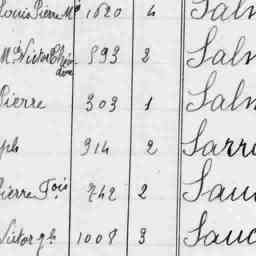 Louis Pierre Mie 1620 4 Saln
Mie Victor Théodore 593 2 Saln
Pierre 303 1 Saln
ph 914 2 Sarre
Pierre Fois 742 2 Sau
Victor 1008 3 Sauc